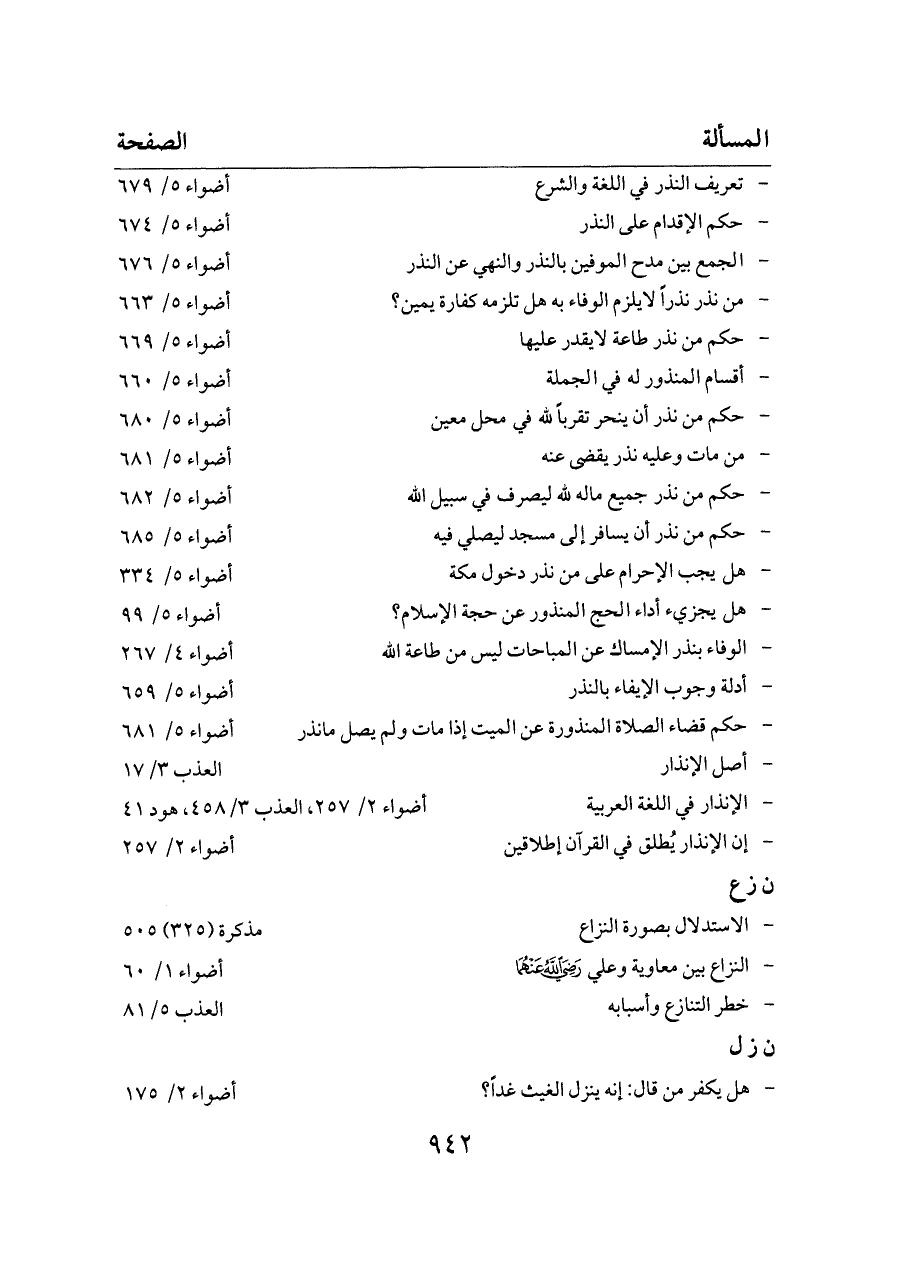 المسألة الصفحة
- تعريف النذر في اللغة والشرع أضواء ٥/ ٦٧٩
- حكم الإقدام على النذر أضواء ٥/ ٦٧٤
- الجمع بين مدح الموفين بالنذر والنهي عن النذر أضواء ٥/ ٦٧٦
- من نذر نذراً لايلزم الوفاء به هل تلزمه كفارة يمين؟ أضواء ٥/ ٦٦٣
- حكم من نذر طاعة لايقدر عليها أضواء ٥/ ٦٦٩
- أقسام المنذور له في الجملة أضواء ٥/ ٦٦٠
- حكم من نذر أن ينحر تقرباً لله في محل معين أضواء ٥/ ٦٨٠
- من مات وعليه نذر يقضى عنه أضواء ٥/ ٦٨١
- حكم من نذر جميع ماله لله ليصرف في سبيل الله أضواء ٥/ ٦٨٢
- حكم من نذر أن يسافر إلى مسجد ليصلي فيه أضواء ٥/ ٦٨٥
- هل يجب الإحرام على من نذر دخول مكة أضواء ٥/ ٣٣٤
- هل يجزيء أداء الحج المنذور عن حجة الإسلام؟ أضواء ٥/ ٩٩
- الوفاء بنذر الإمساك عن المباحات ليس من طاعة الله أضواء ٤/ ٢٦٧
- أدلة وجوب الإيفاء بالنذر أضواء ٥/ ٦٥٩
- حكم قضاء الصلاة المنذورة عن الميت إذا مات ولم يصل مانذر أضواء ٥/ ٦٨١
- أصل الإنذار العذب ٣/ ١٧
- الإنذار في اللغة العربية أضواء ٢/ ٢٥٧، العذب ٣/ ٤٥٨، هود ٤١
- إن الإنذار يُطلق في القرآن إطلاقين أضواء ٢/ ٢٥٧
ن ز ع
- الاستدلال بصورة النزاع مذكرة (٣٢٥) ٥٠٥
- النزاع بين معاوية وعلي رَضِيَ اللَّهُ عَنْهُمَا أضواء ١/ ٦٠
- خطر التنازع وأسبابه العذب ٥/ ٨١
ن ز ل
- هل يكفر من قال: إنه ينزل الغيث غداً؟ أضواء ٢/ ١٧٥
٩٤٢